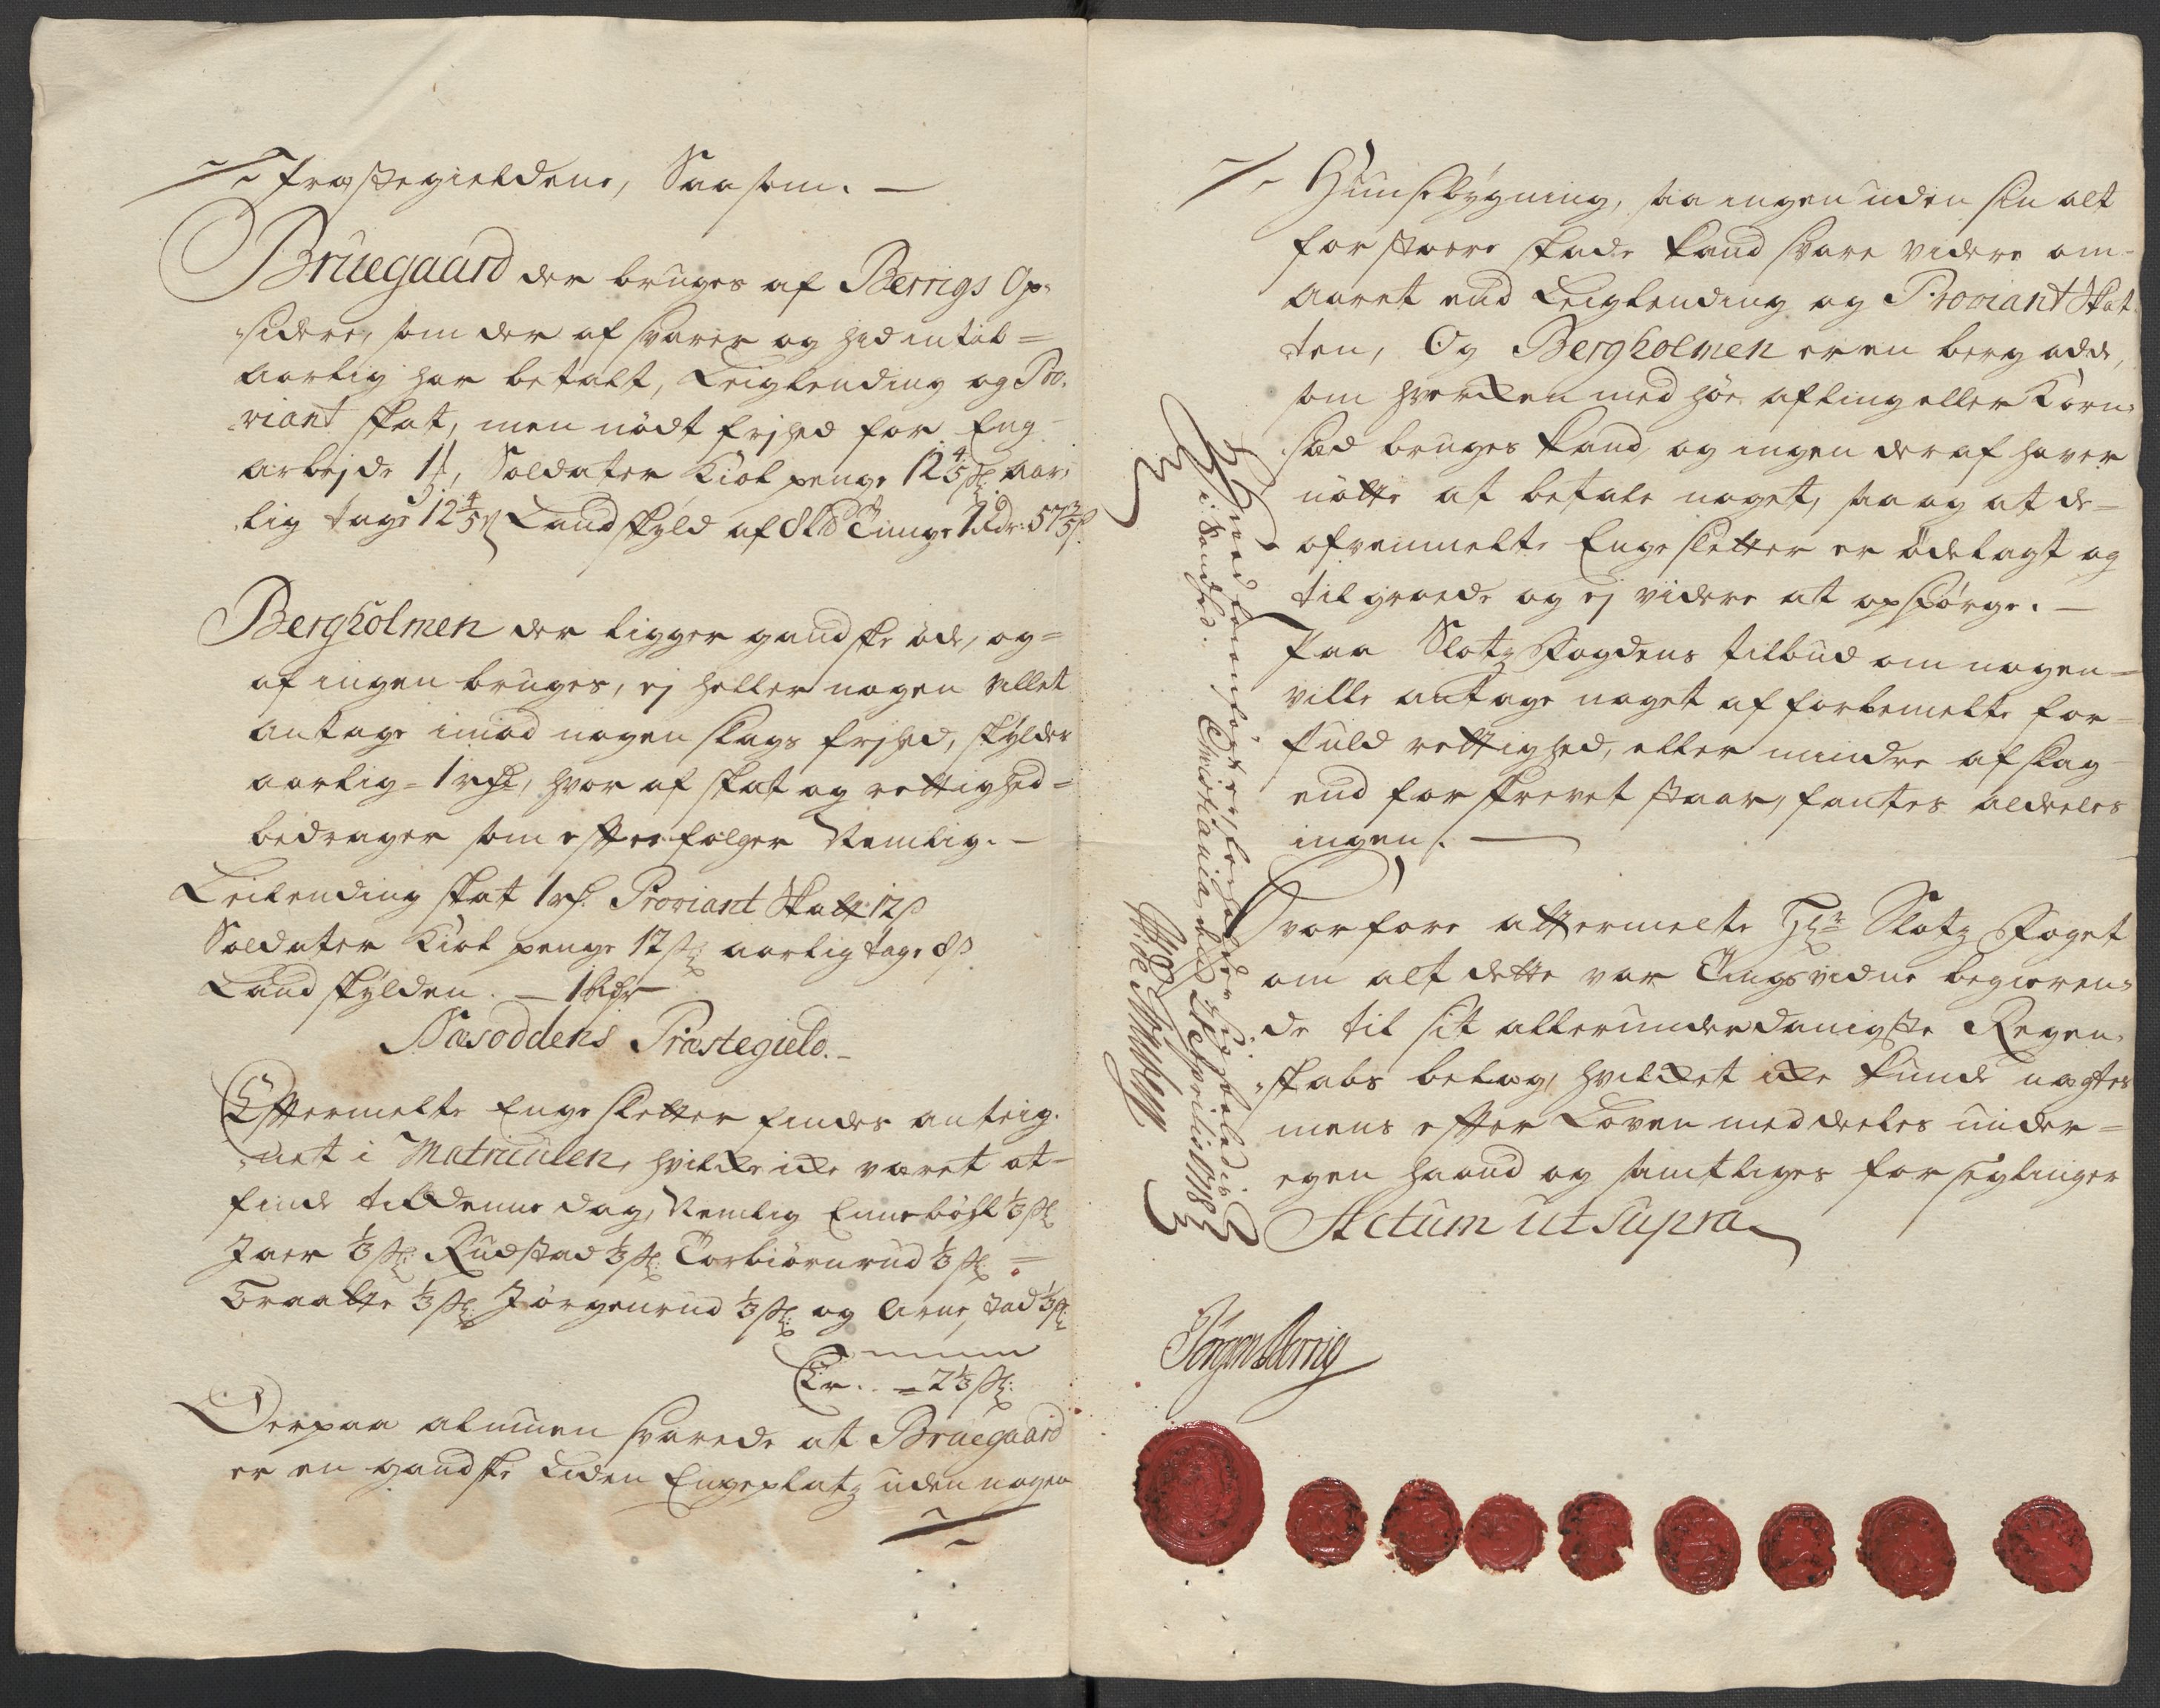 Præstegieldene, Saasom. —
Bruegaard der bruges af Berrigs Op-
sidere, som der af svarer og hid intil=
aarlig har betalt, Leiglending og Pro-
viant skat, men nødt frjhed for Eng-
arbejde 1/, Soldater Kiol penge 12 4/5 ß aar-
lig tage 12 4/5 ß Landskyld af 8 Lb Tunge 1 Rdr: 57 3/5 ß
Bergholmen der ligger gandske øde, og=
af ingen bruges, ej heller nogen villet
antage imod nogen slags frjhed, skylder
aarlig = 1 , hvor af skat og rettighed=
bedrager som efterfølger Nemlig. –
Leilending skat 1 . Proviant Skatt 12 ß
Soldater Kiol penge 12 ß aarlig tage 8 ß
Landskylden. — 1 Rdr
Næsoddens Præstegield. –
Eftermelte Enge sletter findes anteig-
net i Matriculen, hvilke icke været at=
finde till denne dag, Nemlig Ennebøhl 1/3 ß
Jaer 1/3 ß Rudstad 1/3 ß Torbiørnrud 1/3 ß =
Graatte 1/3 ß Jørgenrud 1/3 ß og Arnestad 1/3 ß
Er. = 2 1/3 ß
Derpaa almuen svarede at Bruegaard
er en gandske liden Engeplatz uden nogen
Huusebygning, saa ingen uden sin alt
for store skade kand svare videre om-
aaret end Leiglending og Proviant Skat-
ten, Og Bergholmen er en berg odde,
som hverken med høe afling eller Korn-
sæd bruges kand, og ingen deraf haver
nøtte at betale noget, saa og at de=
ofvenmelte Engesletter er ødelagt og
til grunde og ej videre at opspørge. —
Paa Slotz Fogdens tilbud om nogen=
ville antage noget af forbemelte for=
fuld rettighed, eller mindre afslag
end forskrevet staar, fantes aldeeles
ingen. —
Hvorfore attermelte Hr: Slotz Foget
om alt dette var Tingsvidne begieren-
de til sit allerunderdanigste Regen-
skabs belag, hvilket icke kunde nægtes
mens efter Loven meddeeles under=
egen haand og samtliges forseglinger
Actum ut supra
Jørgen Berrig
i Sandhed. Christiania, Aprilis 1718